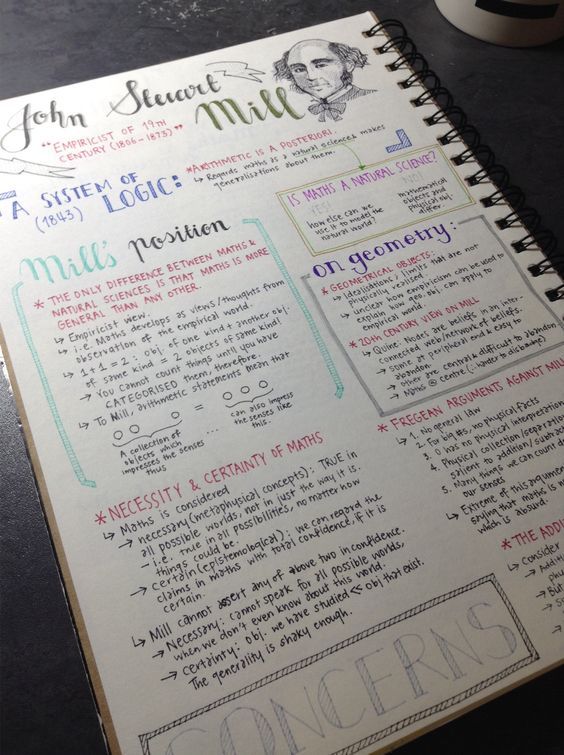 John Stewart
Mill
"EMPIRICIST OF 19TH
CENTURY (1806-1873)"
*ARITHMETIC IS A POSTERIORI.
↳ Regards maths as a natural science & makes
generalisations about them.
A SYSTEM OF
(1843) LOGIC:
IS MATHS A NATURAL SCIENCE?
YES!
How else can we
use it to model the
natural world?
NO!
mathematical
objects and
physical obj.
differ.
Mill's position
* THE ONLY DIFFERENCE BETWEEN MATHS &
NATURAL SCIENCES IS THAT MATHS IS MORE
GENERAL THAN ANY OTHER.
↳ Empiricist view.
↳ i.e. Maths develop as views/thoughts from
observation of the empirical world.
↳ 1+1=2: obj. of one kind + another obj.
of same kind = 2 objects of same kind!
↳ You cannot count things until you have
CATEGORISED them, therefore,
↳ To Mill, arithmetic statements mean that
=
A collection of
objects which
impresses the senses
thus
....
can also impress
the senses like
this.
on geometry:
* GEOMETRICAL OBJECTS:
↳ Idealisations / limits that are not
physically realised.
↳ unclear how empiricism can be used to
explain how geo. obj. can apply to
empirical world.
* 20TH CENTURY VIEW ON MILL
↳ Quine: Nodes are beliefs in an inter-
connected web/network of beliefs
→ some at peripheral end & easy to
abandon.
→ Other are central & difficult to abandon
→ Maths @ centre (∴ harder to dislodge)
* NECESSITY & CERTAINTY OF MATHS
↳ Maths is considered
→ necessary (metaphysical concepts): TRUE in
all possible worlds, not in just the way it is.
- i.e. true in all possibilities, no matter how
things could be.
→ certain (epistemological): we can regard the
claims in maths with total confidence, if it is
certain.
↳ Mill cannot assert any of above two in confidence.
→ Necessary: cannot speak for all possible worlds,
when we don't even know about this world.
→ certainty: obj. we have studied << obj that exist.
The generality is shaky enough.
* FREGEAN ARGUMENTS AGAINST MILL
↳ 1. No general law
↳ 2. For big #s, no physical facts
↳ 3. 0 has no physical interpretation
↳ 4. Physical collection/separation
salient to addition/subtrac
↳ 5. Many things we can count do
our senses
↳ Extreme of this argument
saying that maths is no
which is absurd.
* THE ADDI
↳ Consider
→ Additi
phy
→ But
→ S
CONCERNS